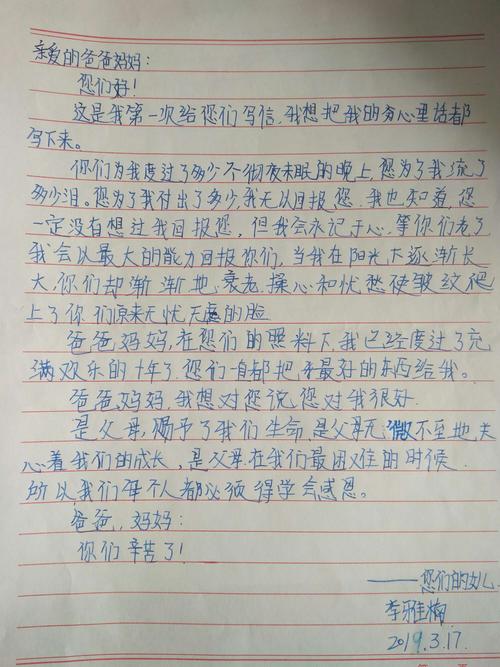 亲爱的爸爸妈妈：
您们好！
这是我第一次给您们写信，我想把我的内心里话都
写下来。
你们为我度过了多少个彻夜未眠的晚上，您为了我流了
多少泪。您为了我付出了多少，我无以回报您。我也知道，您
一定没有想过我回报您，但我会永记于心，等你们老了
我会以最大的能力回报你们，当我在阳光下逐渐长
大，你们却渐渐地衰老，操心和忧愁使皱纹爬
上了你们原来无忧无虑的脸
爸爸妈妈，在您们的照料下，我已经度过了充
满欢乐的十年了，您们一直都把最好的东西给我。
爸爸，妈妈，我想对您说，您对我很好。
是父母，赐予了我们生命，是父母无微不至地关
心着我们的成长，是父母在我们最困难的时候
所以我们每个人都必须得学会感恩。
爸爸，妈妈：
你们辛苦了！
——您们的女儿
李雅楠
2019.3.17.